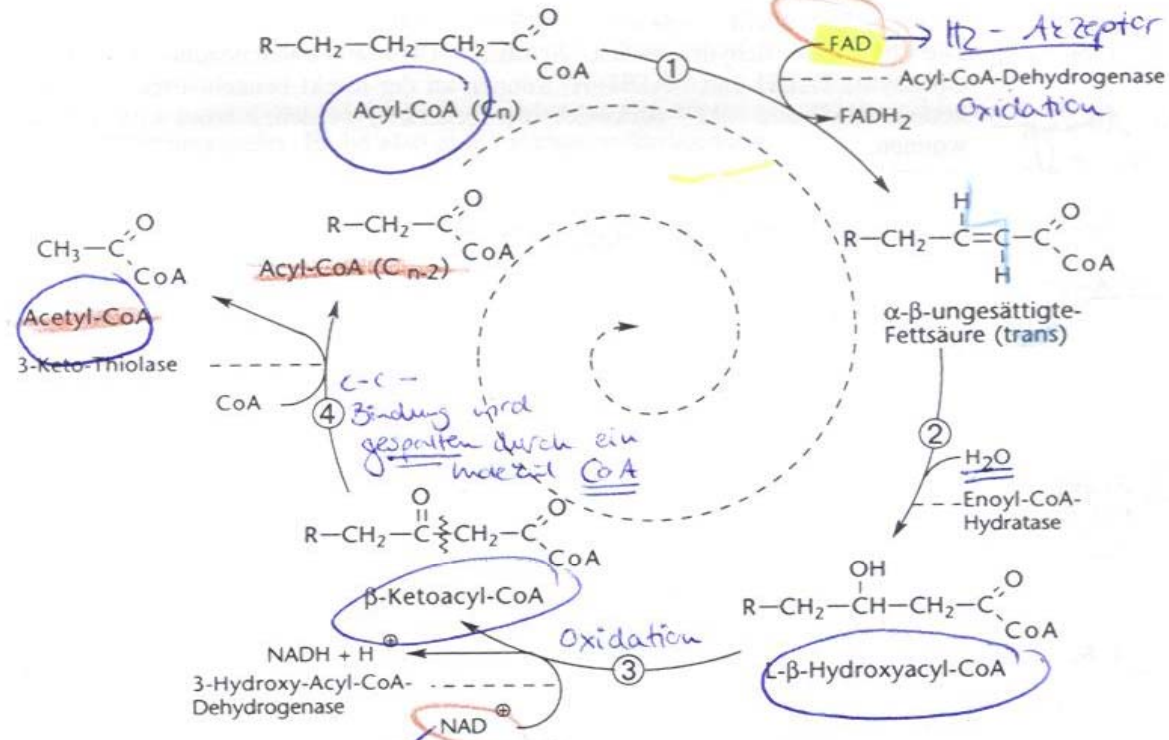 R—CH₂—CH₂—CH₂—C
O
CoA
Acyl-CoA (Cn)
1
FAD → H₂ - Akzeptor
Acyl-CoA-Dehydrogenase
Oxidation
FADH₂
H
R—CH₂—C=C—C
O
CoA
H
α-β-ungesättigte-
Fettsäure (trans)
2
H₂O
Enoyl-CoA-
Hydratase
OH
R—CH₂—CH—CH₂—C
O
CoA
L-β-Hydroxyacyl-CoA
Oxidation
3
NAD⊕
3-Hydroxy-Acyl-CoA-
Dehydrogenase
NADH + H⊕
β-Ketoacyl-CoA
O
R—CH₂—C—CH₂—C
O
CoA
4
C-C-
Bindung wird
gespalten durch ein
CoA
CoA
3-Keto-Thiolase
Acetyl-CoA
CH₃—C
O
CoA
R—CH₂—C
O
CoA
Acyl-CoA (Cn-2)